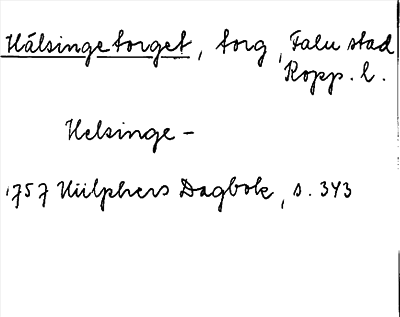 Hälsingetorget, torg, Falu stad
Kopp. l.
Helsinge-
1757 Hülphers Dagbok, s. 343